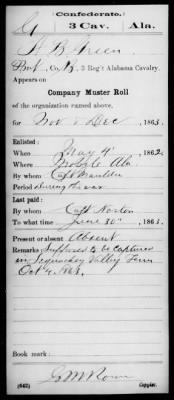 Confederate.
G 3 Cav. Ala.
H B Green
Pvt, Co. B, 3 Reg't Alabama Cavalry.
Appears on
Company Muster Roll
of the organization named above,
for Nov & Dec, 1863.
Enlisted:
When May 4, 1862
Where Mobile Ala
By whom Capt
Period during the war
Last paid:
By whom Capt Norton
To what time June 30", 1863.
Present or absent Absent
Remarks: Supposed to be captured
in Sequachey Valley Tenn
Oct 4, 1863.
Book mark:
(642) Copyist.